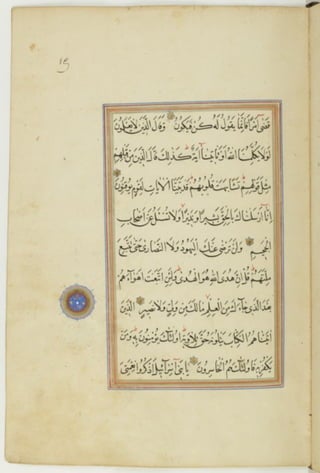 قضى امرا فانما يقول له كن فيكون وقال الذين لا يعلمون
لولا يكلمنا الله او تاتينا اية كذلك قال الذين من قبلهم
مثل قولهم تشابهت قلوبهم قد بينا الايات لقوم يوقنون
انا ارسلناك بالحق بشيرا ونذيرا ولا تسئل عن اصحاب
الجحيم ولن ترضى عنك اليهود ولا النصارى حتى تتبع
ملتهم قل ان هدى الله هو الهدى ولئن اتبعت اهواءهم
بعد الذى جاءك من العلم مالك من الله من ولى ولا نصير الذين
اتيناهم الكتاب يتلونه حق تلاوته اولئك يؤمنون به ومن
يكفر به فاولئك هم الخاسرون يا بنى اسرائيل اذكروا نعمتى